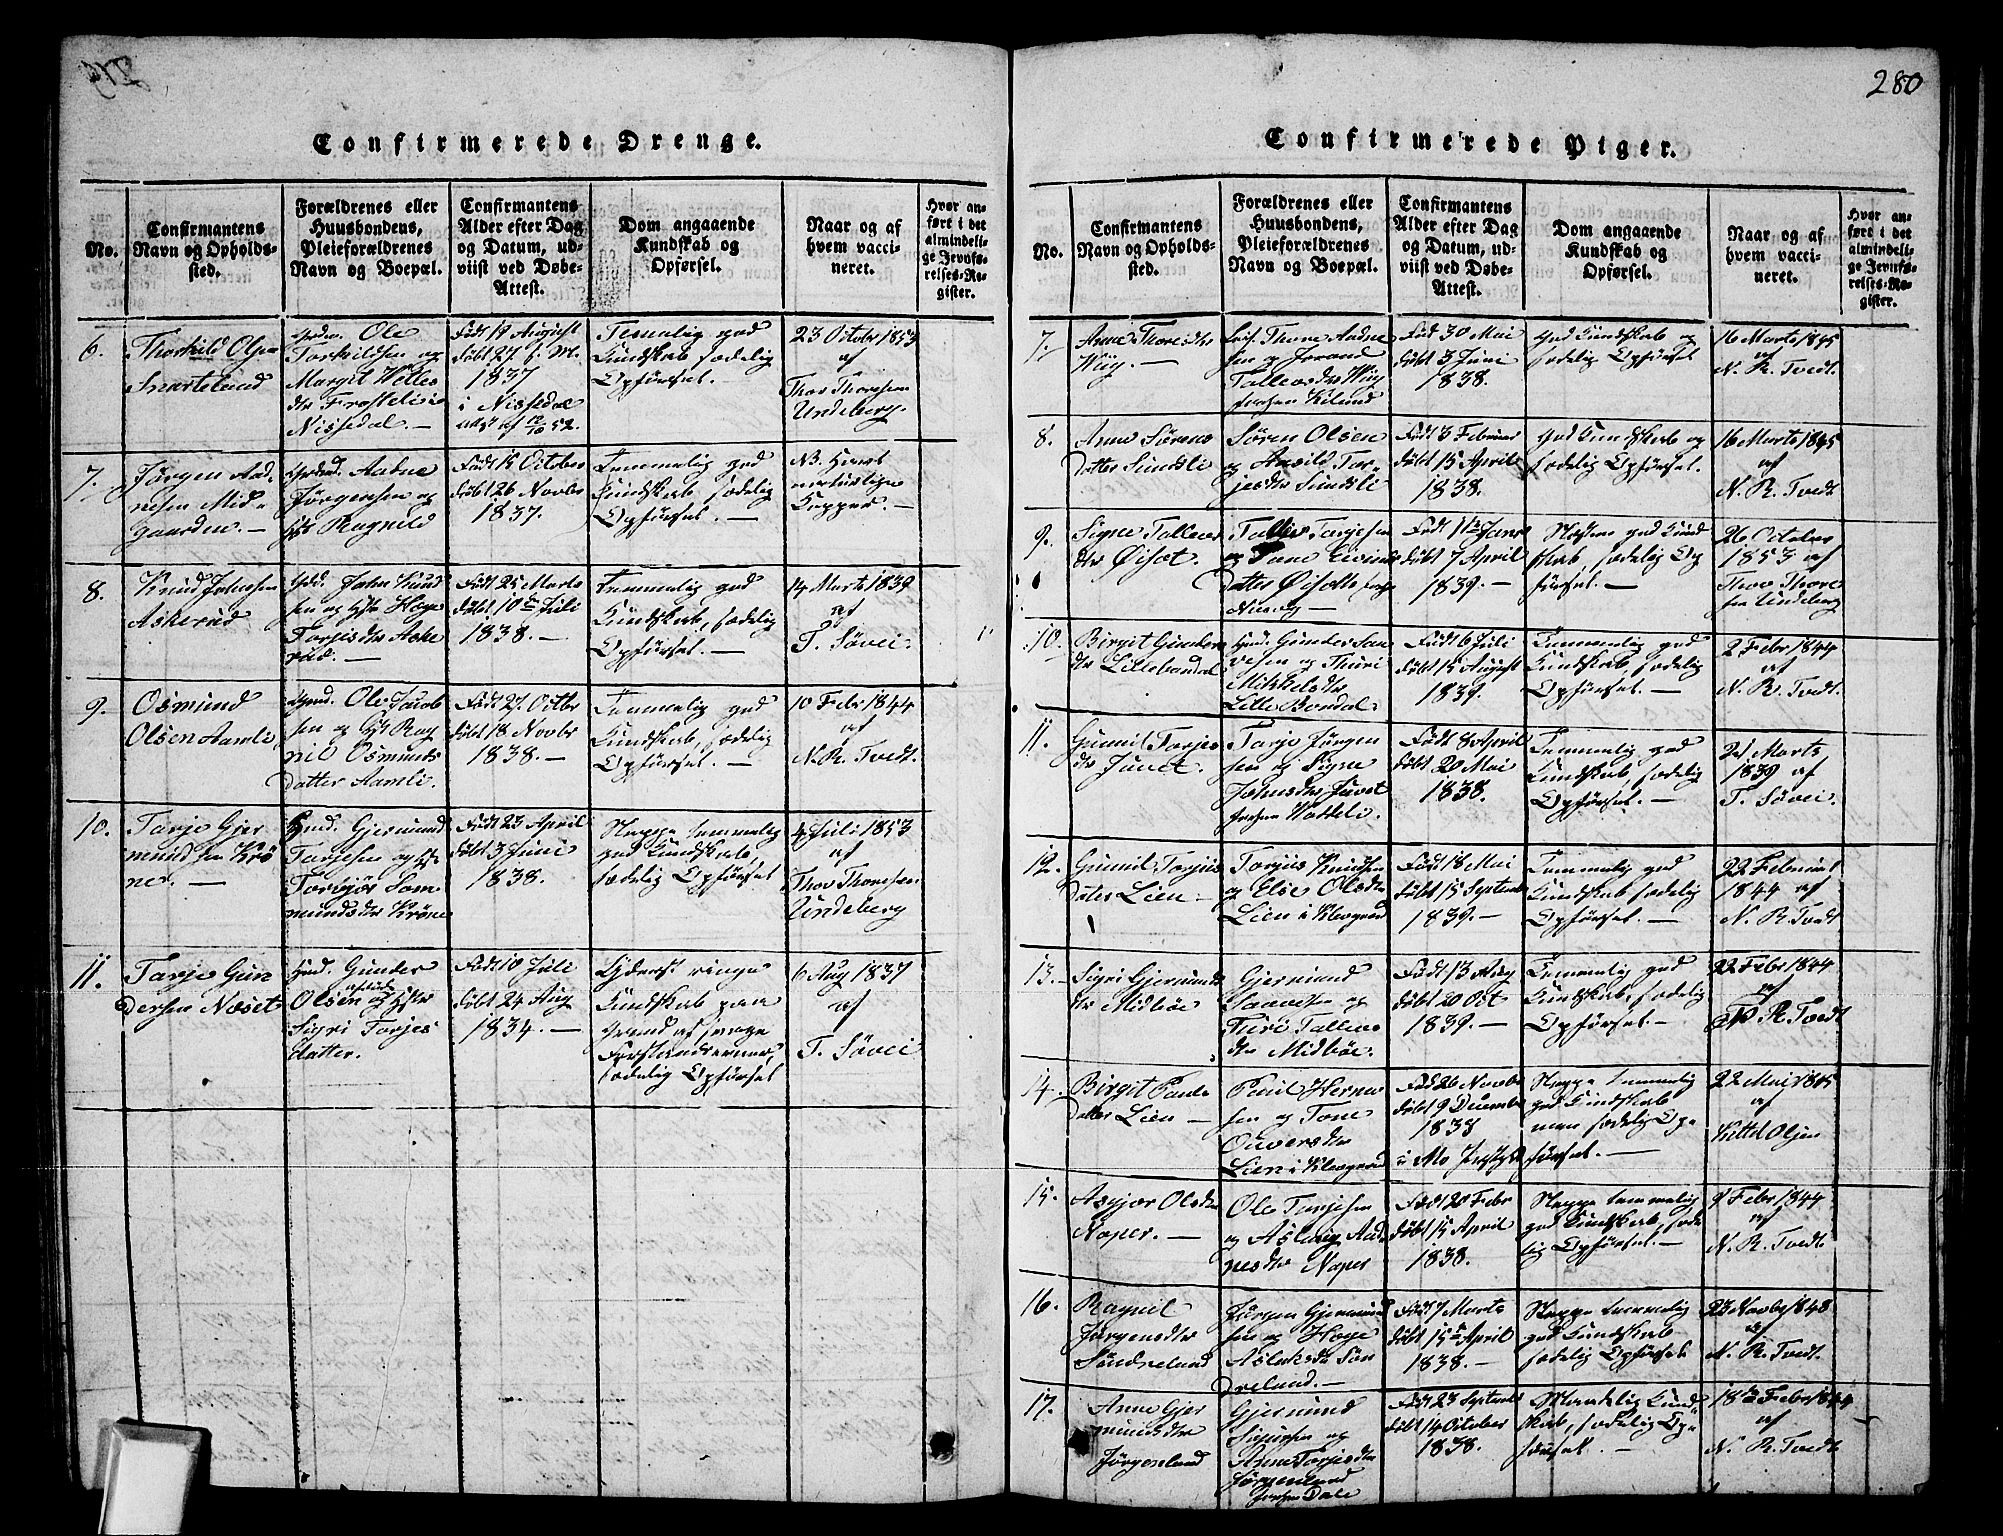 280
Confirmerede Drenge.
No.
Confirmantens
Navn og Opholds-
sted.
Forældrenes eller
Huusbondens,
Pleieforældrenes
Navn og Boepæl.
Confirmantens
Alder efter Dag
og Datum, ud-
viist ved Døbe-
Attest.
Dom angaaende
Kundskab og
Opførsel.
Naar og af
hvem vacci-
neret.
Hvor an-
ført i det
almindeli-
ge Jevnfø-
relses-Re-
gister.
6.
Thorkild Olsen
Snartelund
Ole
Torkildsen og
Margit Velles
dtr Frostelie
Nissedal.—
Født 19 August
døbt 27 s. M.
1837
i Nissedal
Temelig god
Kundskab sædelig
Opførsel.—
23 Octobr 1853
af
Thor Thoresen
Undeberg.
7.
Jørgen Aad
nesen Mid-
gaarden.—
Aadne
Jørgensen og
Ragnild
Født 15 October
døbt 26 Novbr
1837.
Temmelig god
Kundskab sædelig
Opførsel.—
NB. Havt
naturlige
Kopper.—
8.
Knud Johnsen
Askerud
John Knud
sen og Hæge
Torjisdtr Aske
rud.—
Født 25 Marts
døbt 10de Juli
1838.—
Temmelig god
Kundskab, sædelig
Opførsel.—
14 Marts 1839
af
T. Søvei.
9.
Osmund
Olsen Aamli
Ole Jacob
sen og Rag
nil Osmunds
datter Aamli.
Født 27. Octbr
døbt 18 Novbr
1838.—
Temmelig god
Kundskab, sædelig
Opførsel.—
10 Febr 1844
af
N. R. Tvedt.
10.
Tarje Gjer
mundsen Krø
ne.—
Gjermund
Tarjesen og
Torbjør Som
mundsdtr Krone
Født 23 April
døbt 3 Juni
1838.
Neppe temmelig
god Kundskab,
sædelig Opførsel
4 Juli 1853
af
Thor Thoresen
Undeberg
11.
Tarje Gun
dersen Næset
Gunder
Olsen og
Sigri Tarjes
datter.
Født 10 Juli
døbt 24 Aug
1834.—
Yderst ringe
Kundskab paa
Grund af svage
Forstandsevner,
sædelig Opførsel
6 Aug 1837
af
T. Søvei
Confirmerede Piger.
No.
Confirmantens
Navn og Opholds-
sted.
Forældrenes eller
Huusbondens,
Pleieforældrenes
Navn og Boepæl.
Confirmantens
Alder efter Dag
og Datum, ud-
viist ved Døbe-
Attest.
Dom angaaende
Kundskab og
Opførsel.
Naar og af
hvem vacci-
neret.
Hvor an-
ført i det
almindeli-
ge Jevnfø-
relses-Re-
gister.
7.
Anne Thoresdtr
Wiig.—
Thore Aadne
sen og Jorand
Tallevsdtr Wiig
Født 30 Mai
døbt 3 Juni
1838.
God Kundskab og
sædelig Opførsel
16 Marts 1845
af
N. R. Tvedt.
8.
Anne Sørens
datter Sundsli
Søren Olsen
og Aasild Tar-
jesdtr Sundsli
Født 3 Februar
døbt 15 April
1838.
God Kundskab og
sædelig Opførsel.
16 Marts 1845
af
N. R. Tvedt
9.
Signe Tallevs
dtr Øisæt.
Tallev Tarjesen
og Tone Eivinds
datter Øisæt
Født 11te Janr
døbt 7 April
1839.—
Næsten god Kund
skab, sædelig Op
førsel.
26 October
1853 af
Thor Thore
sen Undeberg
10.
Birgit Gunders
dtr Lillebondal
Gunder San
vesen og Thuri
Mikkelsdtr
Lille Bondal.
Født 6 Juli
døbt 15 August
1839.
Temmelig god
Kundskab, sædelig
Opførsel.—
2 Febr 1844
af
N. R. Tvedt.
11.
Gunnil Tarjes
dtr Juvet.
Tarje Jørgen
sen og Signe
Johnsdtr Juvet
Født 8 April
døbt 20 Mai
1838.
Temmelig god
Kundskab, sædelig
Opførsel.—
21 Marts
1839 af
T. Søvei.
12.
Gunnil Torjus
dater Lien—
Torjus Knudsen
og Else Olsdtr
Lien i
Født 18 Mai
døbt 15 Septembr
1839.—
Temmelig god
Kundskab sædelig
Opførsel.—
22 Februar
1844 af
N. R. Tvedt
13.
Sigri Gjermunds
dtr Midbøe
Gjermund
Saavesen og
Turi Tallevs
dtr Midbøe.
Født 13 Aug
døbt 20 Oct
1839.—
Temmelig god
Kundskab, sædelig
Opførsel.—
22 Febr 1844
af
N. R. Tvedt
14.
Birgit Pauls
datter Lien—
Paul
sen og Tone
Ouversdtr
Lien i
Født 26 Novbr
døbt 9 Decembr
1838
i Mo
Neppe temmelig
god Kundskab
men sædelig Op-
førsel.—
22 Mai 1845
af
Kittel Olsen
15.
Asgjær Olsdtr
Naper.—
Ole Tarjesen
og Aslaug Aad
nesdtr Naper
Født 20 Febr
døbt 15 April
1838.
Neppe temmelig
god Kundskab, sæde
lig Opførsel.—
9 Febr 1844
af
N. R. Tvedt.
16.
Ragnil
Jørgensdtr
Søndrelund
Jørgen Gjermund
sen og Hæge
Aslaksdtr Søn
drelund.—
Født 7 Marts
døbt 15de April
1838.—
Neppe temmelig
god Kundskab
sædelig Opførsel.
23 Novbr 1848
af
N. R. Tvedt.
17.
Anne Gjer
mundsdtr
Jørgenlund
Gjermund
og
Anne Torjesdtr
Jørgenlund
Født 23 Septembr
døbt 14 October
1838.
Maadelig Kund-
skab, sædelig Op-
førsel.—
18de Febr 1844
af
N. R. Tvedt